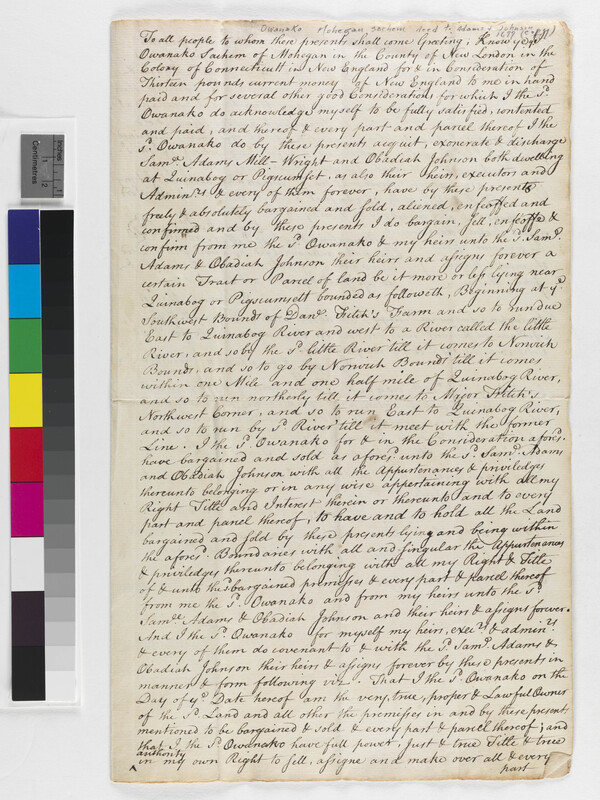 Owanako Mohegan sachem deed to Adams & Johnson
1699
To all people to whom these presents shall come Greeting; Know ye yt. I
Owanako Sachem of Mohegan in the County of New London in the
Colony of Connecticutt in New England for & in Consideration of
Thirteen pounds current money of New England to me in hand
paid and for several other good Considerations for which I the sd.
Owanako do acknowledge myself to be fully satisfied, contented
and paid, and thereof & every part and parcel thereof I the
sd. Owanako do by these presents acquit, exonerate & discharge
Saml. Adams Mill-Wright and Obadiah Johnson both dwelling
at Quinabog or Pigscumset, as also their heirs, executors and
Adminrs & every of them forever, have by these presents
freely & absolutely bargained and sold, aliened, enfeoffed and
confirmed and by these presents I do bargain, sell, enfeoffe &
confirm from me the sd. Owanako & my heirs unto the sd. Saml.
Adams & Obadiah Johnson their heirs and assigns forever a
certain Tract or Parcel of land be it more or less lying near
Quinabog or Pigscumsett bounded as followeth, Beginning at ye.
Southwest Bounds of Danl. Fitch's Farm and so to run due
East to Quinabog River and west to a River called the little
River, and so by the sd. little River till it comes to Norwich
Bounds, and so to go by Norwich Bounds till it comes
within one Mile and one half mile of Quinabog River,
and so to run northerly till it comes to Major Fitch's
Northwest Corner, and so to run East to Quinabog River,
and so to run by sd. River till it meet with the former
Line. I the sd. Owanako for & in the Consideration aforesd.
have bargained and sold as aforesd. unto the sd. Saml. Adams
and Obadiah Johnson with all the Appurtenances & priviledges
thereunto belonging or in any wise appertaining with all my
Right Title and Interest therein or thereunto and to every
part and parcel thereof, to have and to hold all the Land
bargained and sold by these presents lying and being within
the aforesd. Boundaries with all and singular the Appurtenances
& priviledges thereunto belonging with all my Right & Title
of & unto the bargained premisses & every part & parcel thereof
from me the sd. Owanako and from my heirs unto the sd.
Samll. Adams & Obadiah Johnson and their heirs & assigns forever.
And I the sd. Owanako for myself my heirs, execrs. & adminrs
& every of them do covenant to & with the sd. Saml. Adams &
Obadiah Johnson their heirs & assigns forever by these presents in
manner & form following viz. That I the sd. Owanako on the
Day of ye Date hereof am the very, true, proper & Lawful Owner
of the sd. Land and all other the premisses in and by these presents
mentioned to be bargained & sold & every part & parcel thereof; and
that I the sd. Owanako have full power, Just & true Title & true
authority
^ in my own Right to sell, assigne and make over all & every
part
Centimetres